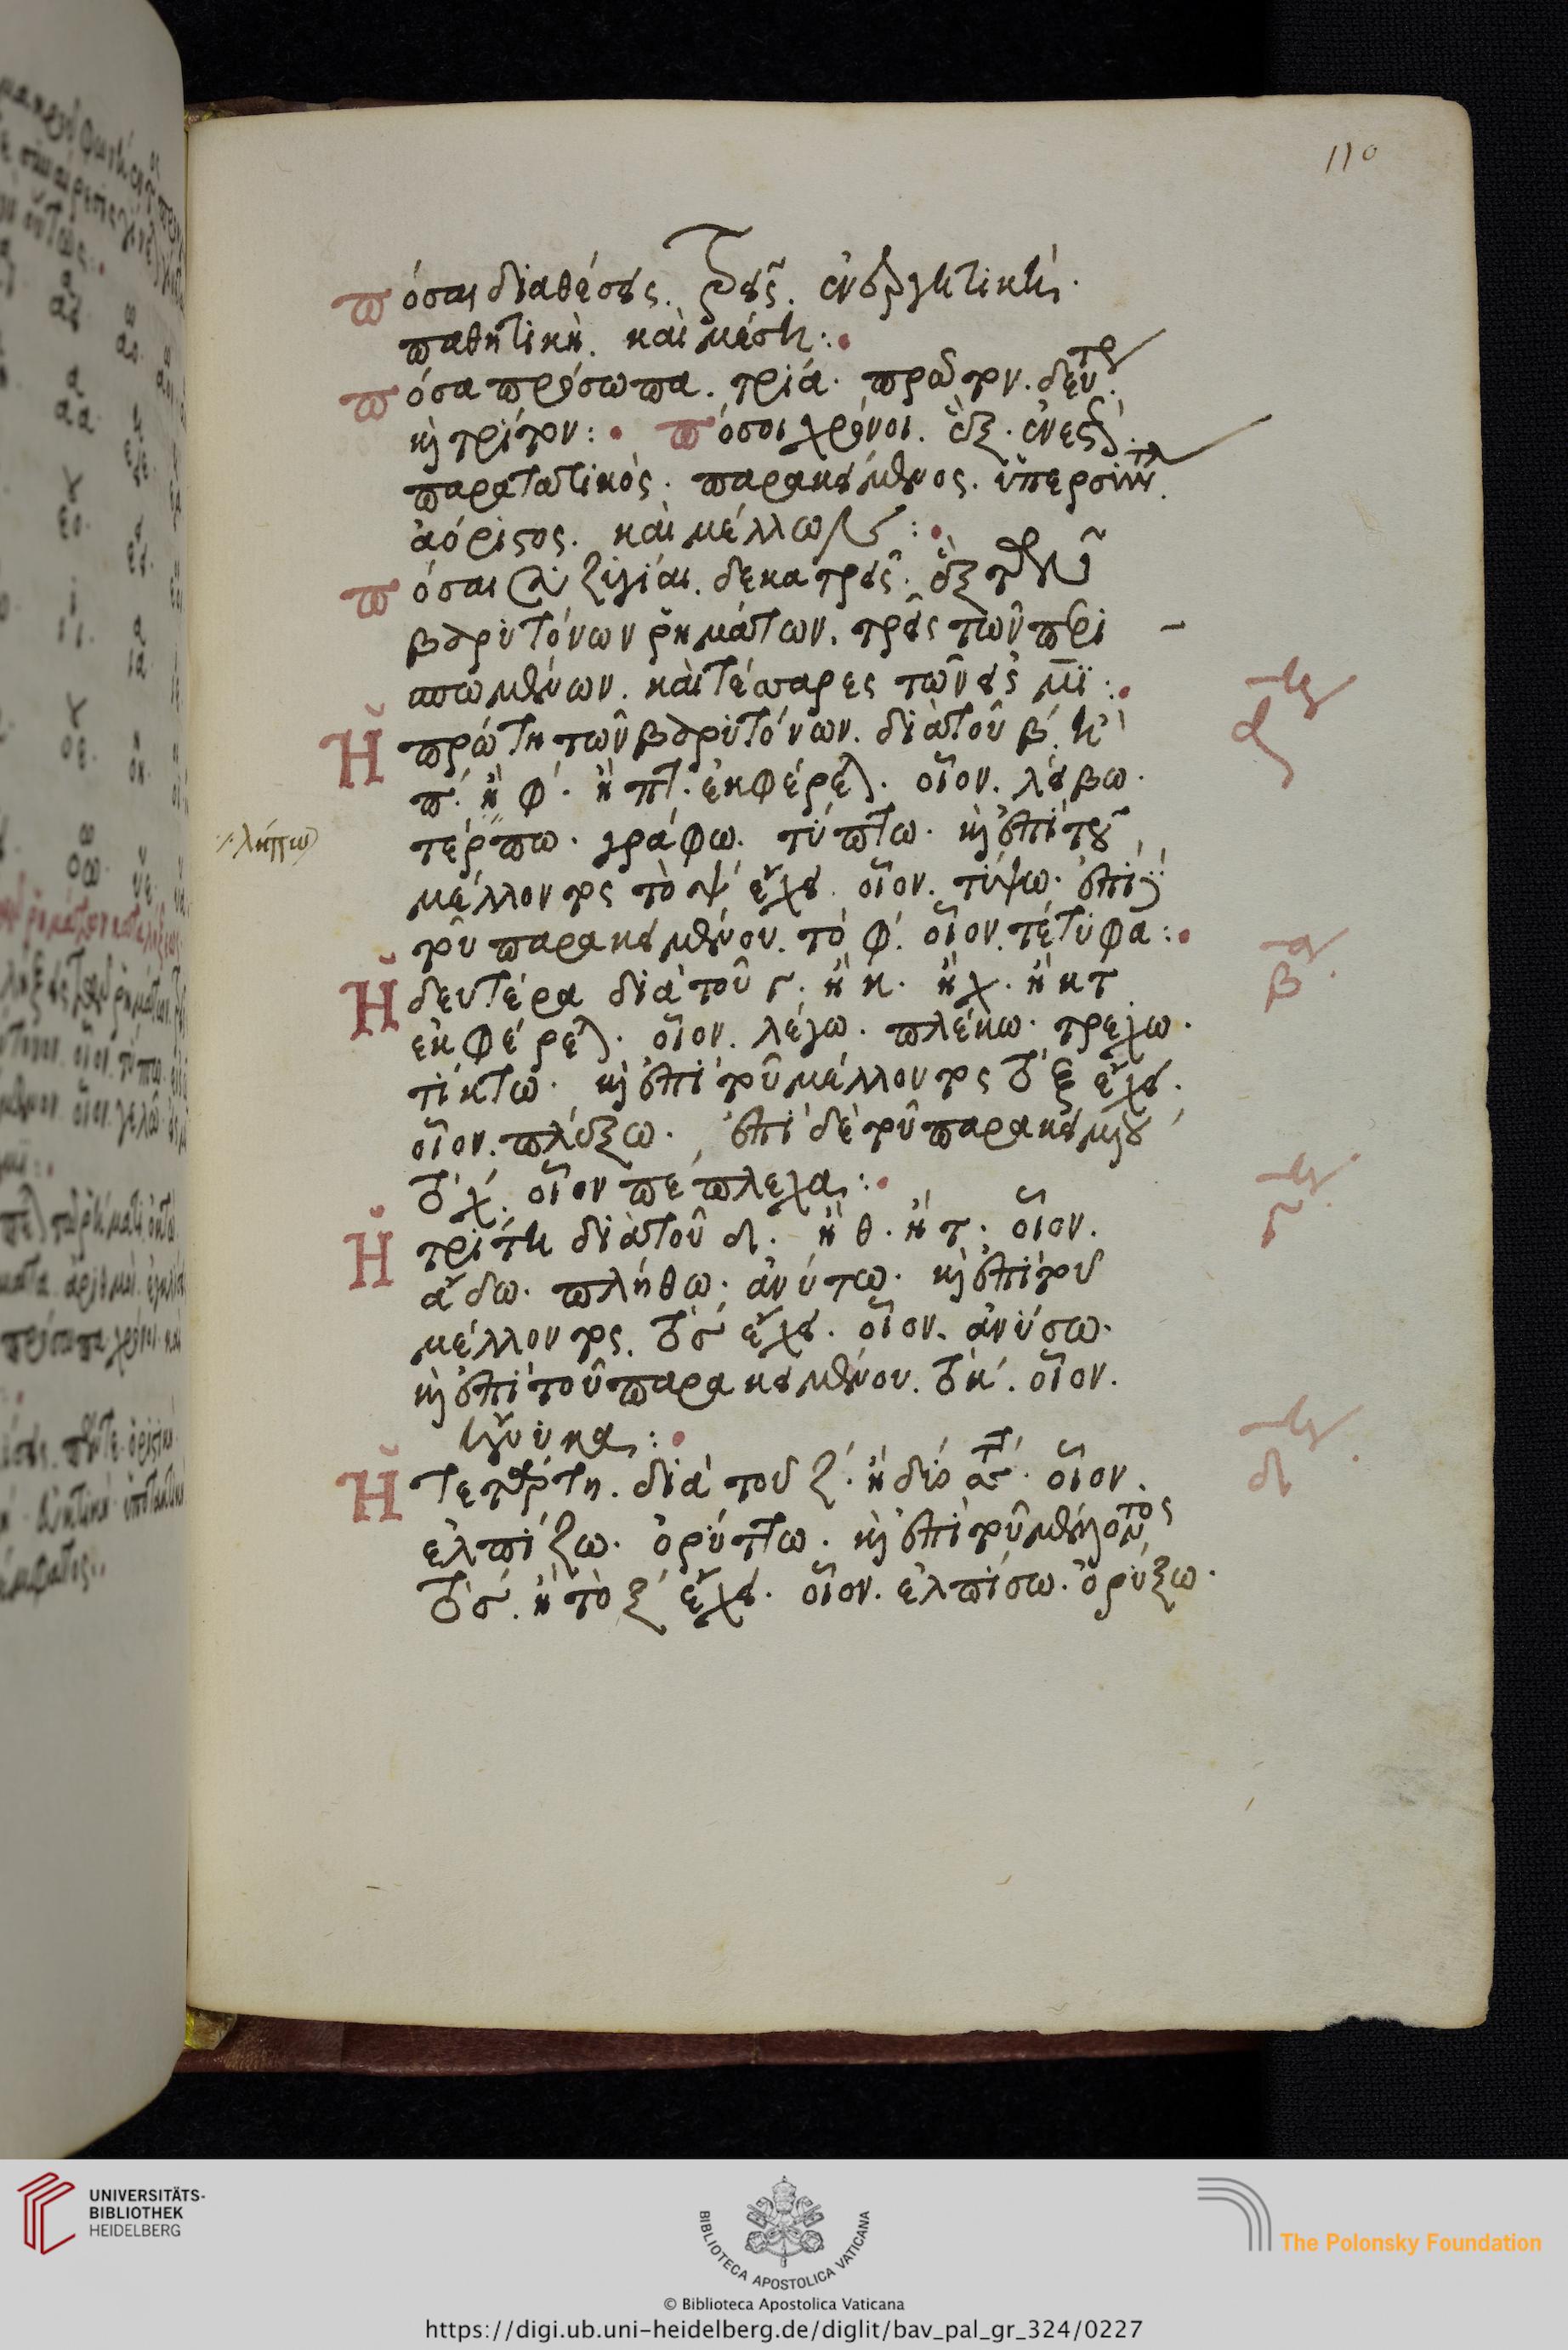 110
πόσαι διαθέσεις. τρεῖς. ἐνεργητικὴ.
παθητικὴ. καὶ μέση:
πόσα πρόσωπα. τρία. πρῶτον. δεύτερον.
καὶ τρίτον: πόσοι χρόνοι. ἓξ. ἐνεστὼς.
παρατατικὸς. παρακείμενος. ὑπερσυντέλικος.
ἀόριστος. καὶ μέλλων:
πόσαι συζυγίαι. δεκατρεῖς. ἓξ τῶν
βαρυτόνων ῥημάτων. τρεῖς τῶν περι
σπωμένων. καὶ τέσσαρες τῶν εἰς μι:
Ἡ πρώτη τῶν βαρυτόνων. διὰ τοῦ β. ἢ
π. ἢ φ. ἢ πτ. ἐκφέρεται. οἷον. λείβω.
τέρπω. γράφω. τύπτω. καὶ ἐπὶ τοῦ
μέλλοντος τὸ ψ ἔχει. οἷον. τύψω. ἐπὶ δὲ
τοῦ παρακειμένου. τὸ φ. οἷον. τέτυφα:
Ἡ δευτέρα διὰ τοῦ γ. ἢ κ. ἢ χ. ἢ κτ
ἐκφέρεται. οἷον. λέγω. πλέκω. τρέχω.
τίκτω. καὶ ἐπὶ τοῦ μέλλοντος τὸ ξ ἔχει.
οἷον. πλέξω. ἐπὶ δὲ τοῦ παρακειμένου
τὸ χ. οἷον πέπλεχα:
Ἡ τρίτη διὰ τοῦ δ. ἢ θ. ἢ τ. οἷον.
ἄδω. πλήθω. ἀνύτω. καὶ ἐπὶ τοῦ
μέλλοντος. τὸ σ ἔχει. οἷον. ἀνύσω.
καὶ ἐπὶ τοῦ παρακειμένου. τὸ κ. οἷον.
ἤνυκα:
Ἡ τετάρτη. διὰ τοῦ ζ. ἢ δύο ττ. οἷον.
ἐλπίζω. ὀρύττω. καὶ ἐπὶ τοῦ μέλλοντος
τὸ σ. ἢ τὸ ξ ἔχει. οἷον. ἐλπίσω. ὀρύξω.
λήπω
α
β
γ
δ
UNIVERSITÄTS-
BIBLIOTHEK
HEIDELBERG
BIBLIOTECA APOSTOLICA VATICANA
The Polonsky Foundation
© Biblioteca Apostolica Vaticana
https://digi.ub.uni-heidelberg.de/diglit/bav_pal_gr_324/0227